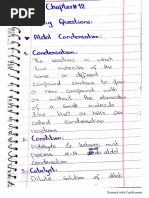 Chapter# 12
Long Questions:
Aldol Condensation:
Condensation:
The reactions in which
two molecules of the
same or different
compound combine to form
a new compound with
or without the elimination
of a small molecule
like H₂O or NH₃ are
called condensation
reactions
2. Condition:
Aldehyde & ketones must
possess α-H to do aldol
condensation.
3. Catalyst:
Dilute solution of alkali
Scanned with CamScanner